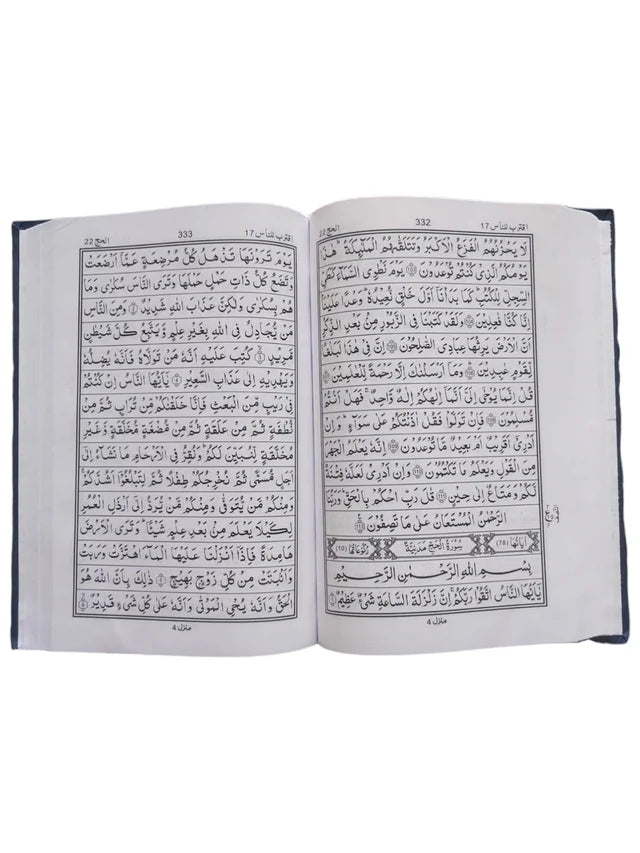 اقترب للناس 17
332
الحج 22
لَا يَحْزُنُهُمُ الْفَزَعُ الْاَكْبَرُ وَتَتَلَقّٰىهُمُ الْمَلٰٓئِكَةُ ؕ هٰذَا
يَوْمُكُمُ الَّذِیْ كُنْتُمْ تُوْعَدُوْنَ ﴿۱۰۳﴾ يَوْمَ نَطْوِی السَّمَآءَ كَطَیِّ
السِّجِلِّ لِلْكُتُبِ ؕ كَمَا بَدَاْنَاۤ اَوَّلَ خَلْقٍ نُّعِيْدُهٗ ؕ وَعْدًا عَلَيْنَا ؕ
اِنَّا كُنَّا فٰعِلِيْنَ ﴿۱۰۴﴾ وَلَقَدْ كَتَبْنَا فِی الزَّبُوْرِ مِنْۢ بَعْدِ الذِّكْرِ
اَنَّ الْاَرْضَ يَرِثُهَا عِبَادِیَ الصّٰلِحُوْنَ ﴿۱۰۵﴾ اِنَّ فِیْ هٰذَا لَبَلٰغًا
لِّقَوْمٍ عٰبِدِيْنَ ﴿۱۰۶﴾ وَمَاۤ اَرْسَلْنٰكَ اِلَّا رَحْمَةً لِّلْعٰلَمِيْنَ ﴿۱۰۷﴾
قُلْ اِنَّمَا يُوْحٰۤى اِلَیَّ اَنَّمَاۤ اِلٰهُكُمْ اِلٰهٌ وَّاحِدٌ ۚ فَهَلْ اَنْتُمْ
مُّسْلِمُوْنَ ﴿۱۰۸﴾ فَاِنْ تَوَلَّوْا فَقُلْ اٰذَنْتُكُمْ عَلٰى سَوَآءٍ ؕ وَاِنْ
اَدْرِیْۤ اَقَرِيْبٌ اَمْ بَعِيْدٌ مَّا تُوْعَدُوْنَ ﴿۱۰۹﴾ اِنَّهٗ يَعْلَمُ الْجَهْرَ
مِنَ الْقَوْلِ وَيَعْلَمُ مَا تَكْتُمُوْنَ ﴿۱۱۰﴾ وَاِنْ اَدْرِیْ لَعَلَّهٗ فِتْنَةٌ
لَّكُمْ وَمَتَاعٌ اِلٰى حِيْنٍ ﴿۱۱۱﴾ قٰلَ رَبِّ احْكُمْ بِالْحَقِّ ؕ وَرَبُّنَا
الرَّحْمٰنُ الْمُسْتَعَانُ عَلٰى مَا تَصِفُوْنَ ﴿۱۱۲﴾
اٰيَاتُهَا (78) سُوْرَةُ الْحَجِّ مَدَنِيَّةٌ رُكُوْعَاتُهَا (10)
بِسْمِ اللهِ الرَّحْمٰنِ الرَّحِيْمِ
يٰۤاَيُّهَا النَّاسُ اتَّقُوْا رَبَّكُمْ ۚ اِنَّ زَلْزَلَةَ السَّاعَةِ شَیْءٌ عَظِيْمٌ ﴿۱﴾
منزل 4
اقترب للناس 17
333
الحج 22
يَوْمَ تَرَوْنَهَا تَذْهَلُ كُلُّ مُرْضِعَةٍ عَمَّاۤ اَرْضَعَتْ
وَتَضَعُ كُلُّ ذَاتِ حَمْلٍ حَمْلَهَا وَتَرَى النَّاسَ سُكٰرٰى وَمَا
هُمْ بِسُكٰرٰى وَلٰكِنَّ عَذَابَ اللهِ شَدِيْدٌ ﴿۲﴾ وَمِنَ النَّاسِ
مَنْ يُّجَادِلُ فِی اللهِ بِغَيْرِ عِلْمٍ وَّيَتَّبِعُ كُلَّ شَيْطٰنٍ
مَّرِيْدٍ ﴿۳﴾ كُتِبَ عَلَيْهِ اَنَّهٗ مَنْ تَوَلَّاهُ فَاَنَّهٗ يُضِلُّهٗ
وَيَهْدِيْهِ اِلٰى عَذَابِ السَّعِيْرِ ﴿۴﴾ يٰۤاَيُّهَا النَّاسُ اِنْ كُنْتُمْ
فِیْ رَيْبٍ مِّنَ الْبَعْثِ فَاِنَّا خَلَقْنٰكُمْ مِّنْ تُرَابٍ ثُمَّ مِنْ
نُّطْفَةٍ ثُمَّ مِنْ عَلَقَةٍ ثُمَّ مِنْ مُّضْغَةٍ مُّخَلَّقَةٍ وَّغَيْرِ
مُخَلَّقَةٍ لِّنُبَيِّنَ لَكُمْ ؕ وَنُقِرُّ فِی الْاَرْحَامِ مَا نَشَآءُ اِلٰۤى
اَجَلٍ مُّسَمًّى ثُمَّ نُخْرِجُكُمْ طِفْلًا ثُمَّ لِتَبْلُغُوْۤا اَشُدَّكُمْ ۚ
وَمِنْكُمْ مَّنْ يُّتَوَفّٰى وَمِنْكُمْ مَّنْ يُّرَدُّ اِلٰۤى اَرْذَلِ الْعُمُرِ
لِكَيْلَا يَعْلَمَ مِنْۢ بَعْدِ عِلْمٍ شَيْـًٔا ؕ وَتَرَى الْاَرْضَ
هَامِدَةً فَاِذَاۤ اَنْزَلْنَا عَلَيْهَا الْمَآءَ اهْتَزَّتْ وَرَبَتْ
وَاَنْۢبَتَتْ مِنْ كُلِّ زَوْجٍۭ بَهِيْجٍ ﴿۵﴾ ذٰلِكَ بِاَنَّ اللهَ هُوَ
الْحَقُّ وَاَنَّهٗ يُحْیِ الْمَوْتٰى وَاَنَّهٗ عَلٰى كُلِّ شَیْءٍ قَدِيْرٌ ﴿۶﴾
منزل 4